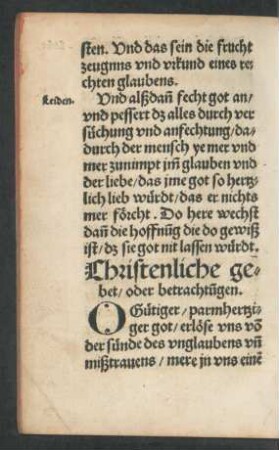 sten. Vnd das sein die frucht
zeugnns vnd vrkund eines re⸗
chten glaubens.
Leiden.
Vnd alßdañ fecht got an/
vnd pessert dz alles durch ver
sůchung vnd anfechtung/da⸗
durch der mensch ye mer vnd
mer zunimpt jm̄ glauben vnd
der liebe/das jme got so hertz⸗
lich lieb würdt/das er nichts
mer förcht. Do here wechst
dañ die hoffnũg die do gewiß
ist/dz sie got nit lassen würdt.
Christenliche ge⸗
bet/oder betrachtũgen.
O Gütiger/parmhertzi⸗
ger got/erlöse vns võ
der sünde des vnglaubens vñ
mißtrauens/mere jn vns einẽ